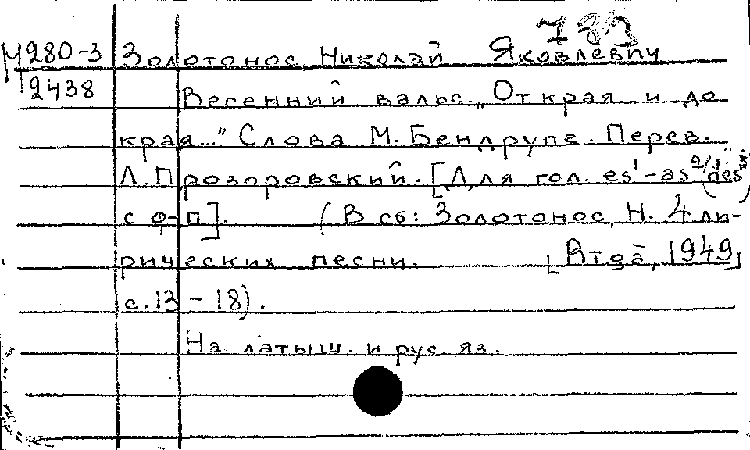 783
М280-3 Золотонос Николай Яковлевич
12438 Весенний вальс „От края и до
края..." Слова М. Бендрупе. Перев.
Л. Прозоровский. [Для гол. es¹-as²/des
с ф-п]. (В сб: Золотонос, Н. 4 ли-
рических песни. [Рига, 1949]
с.13-18).
На латыш. и рус. яз.